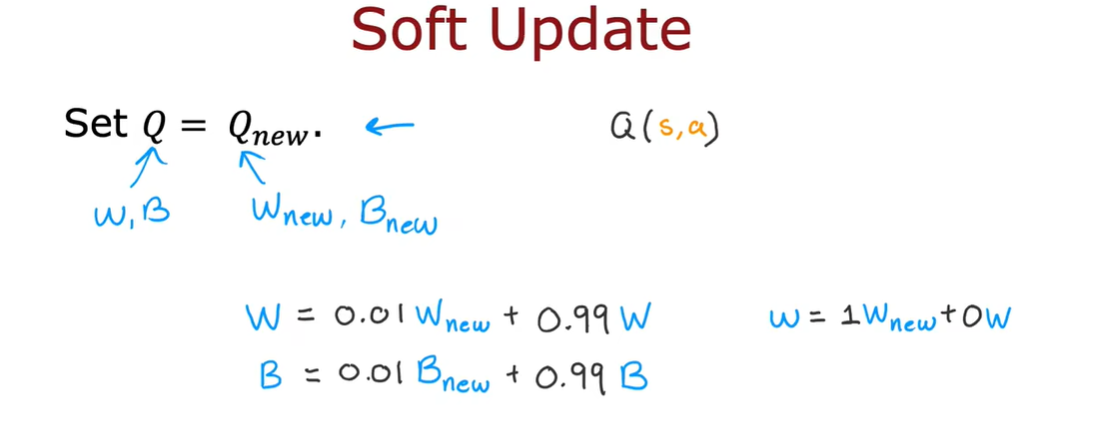 Soft Update
Set Q = Qnew. ← Q(s,a)
W,B Wnew, Bnew
W = 0.01 Wnew + 0.99 W w = 1Wnew + 0W
B = 0.01 Bnew + 0.99 B